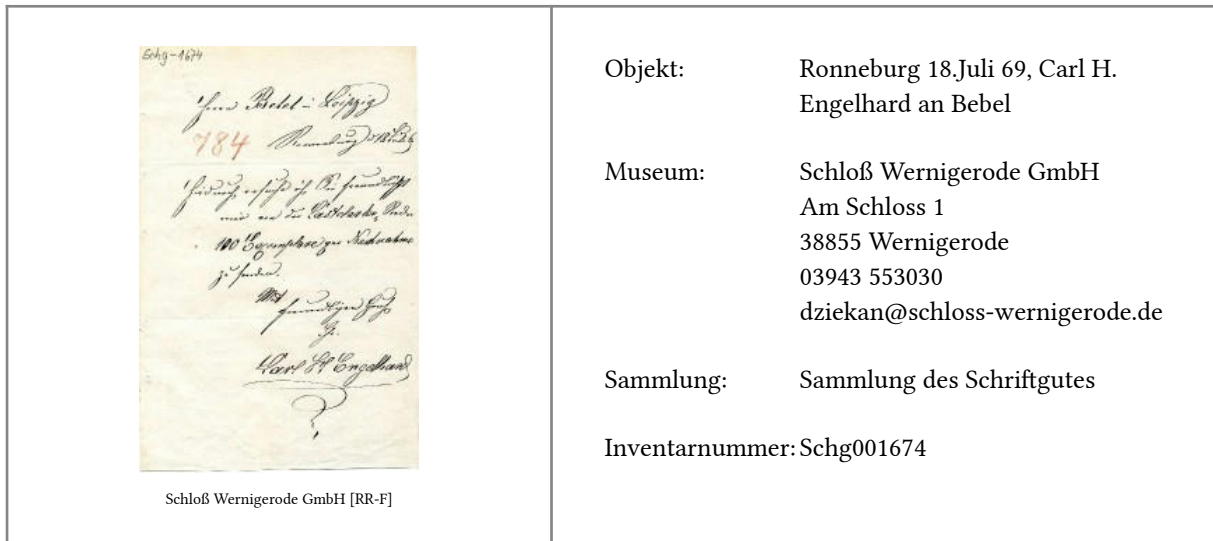 Schg-1674
Herrn Bebel in Leipzig
784 Ronneburg d 18
Hierdurch ersuche ich Sie freundlichst
mir von der Castelar Rede
100 Exemplare per Nachnahme
zu senden.
Mit
freundlichem Gruß
Carl H Engelhard
Schloß Wernigerode GmbH [RR-F]
Objekt: Ronneburg 18.Juli 69, Carl H.
Engelhard an Bebel
Museum: Schloß Wernigerode GmbH
Am Schloss 1
38855 Wernigerode
03943 553030
dziekan@schloss-wernigerode.de
Sammlung: Sammlung des Schriftgutes
Inventarnummer: Schg001674